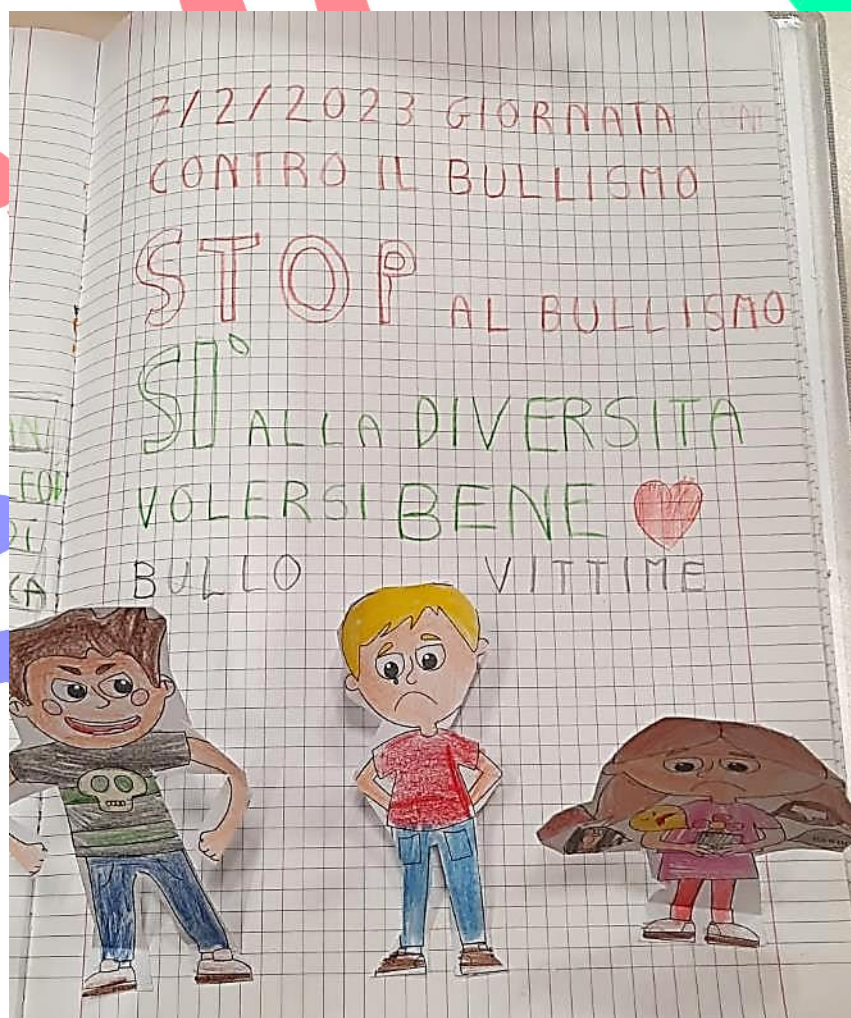 7/2/2023 GIORNATA
CONTRO IL BULLISMO
STOP AL BULLISMO
SÌ ALLA DIVERSITA
VOLERSI BENE
BULLO VITTIME